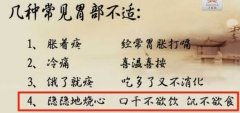 几种常见胃部不适：
1、胀着疼 经常胃胀打嗝
2、冷痛 喜温喜按
3、饿了就疼 吃多了又不消化
4、隐隐地烧心 口干不欲饮 饥不欲食